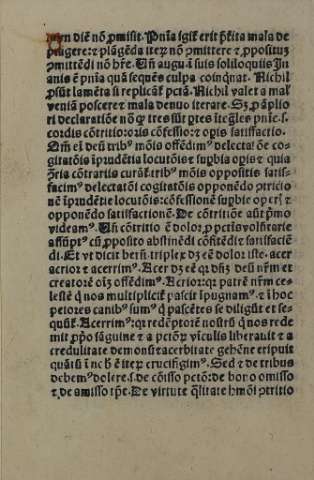 diē nō ꝓmisit. Pn̄ia igit̉ erit p̄terita mala de
plāgere: ⁊ plāgēda iterū nō ꝑmittere ⁊ ꝓpositū
ꝑmittēdi nō hr̄e. Un̄ augu. ī suis soliloquiis In
anis ē pn̄ia quā sequēs culpa coinq̄nat. Nichil
ꝓsūt lamēta si replicāt̉ pctā. Nichil valet a mal̉
veniā poscere ⁊ mala denuo iterare. Sꝫ ꝓ āplio
ri declaratiōe nō qꝫ tres sūt ptes ītegles pnie. s.
cordis cōtritio: oris cōfessio: ⁊ oꝑis satisfactio.
Qm̄ eī deū tribꝰ modis offēdimꝰ delectatōe co
gitatōis īprudētia locutōis ⁊ suꝑbia oꝑis ⁊ quia
ꝯria cōtrariis curāt̉ tribꝰ mōis oppositis satis
facimꝰ delectatōni cogitatōis opponēdo ꝯtricio
nē īprudētie locutōis: cōfessionē suꝑbie
opponēdo satisfactionem. De cōtritiōe aūt pͥmo
videamꝰ. Un̄ cōtritio ē dolor ꝓ pctis volūtarie
assūptꝰ cū ꝓposito abstinēdi cōfitēdi ⁊ satisfaciē
di. Et vt dicit bern̄. triplex dꝫ eē dolor iste. acer
acrior ⁊ acerrimꝰ. Acer dꝫ eē qꝛ dn̄m deū nr̄m et
creatorē oīm offēdimꝰ. Acrior: qꝛ patrē nr̄m ce-
lestē q̄ nos multiplicit̉ pascit īpugnamꝰ. ⁊ ī hoc
peiores canibꝰ sumꝰ q̄ pascētes se diligūt et se-
quūt̉. Acerrimꝰ: qꝛ redēptorē nostrū q̄ nos rede
mit ꝓprio sāguine ⁊ a pctōꝝ vīculis liberauit ⁊ a
crudelitate demonū ⁊ acerbitate gehēne eripuit
quātū ī nob̄ ē iteꝝ crucifigimꝰ. Sed ⁊ de tribus
debemꝰ dolere. s. de cōisso pctō: de bono omisso
⁊ de amisso tꝑe. De virtute q̄litate hmōi ꝯtritio